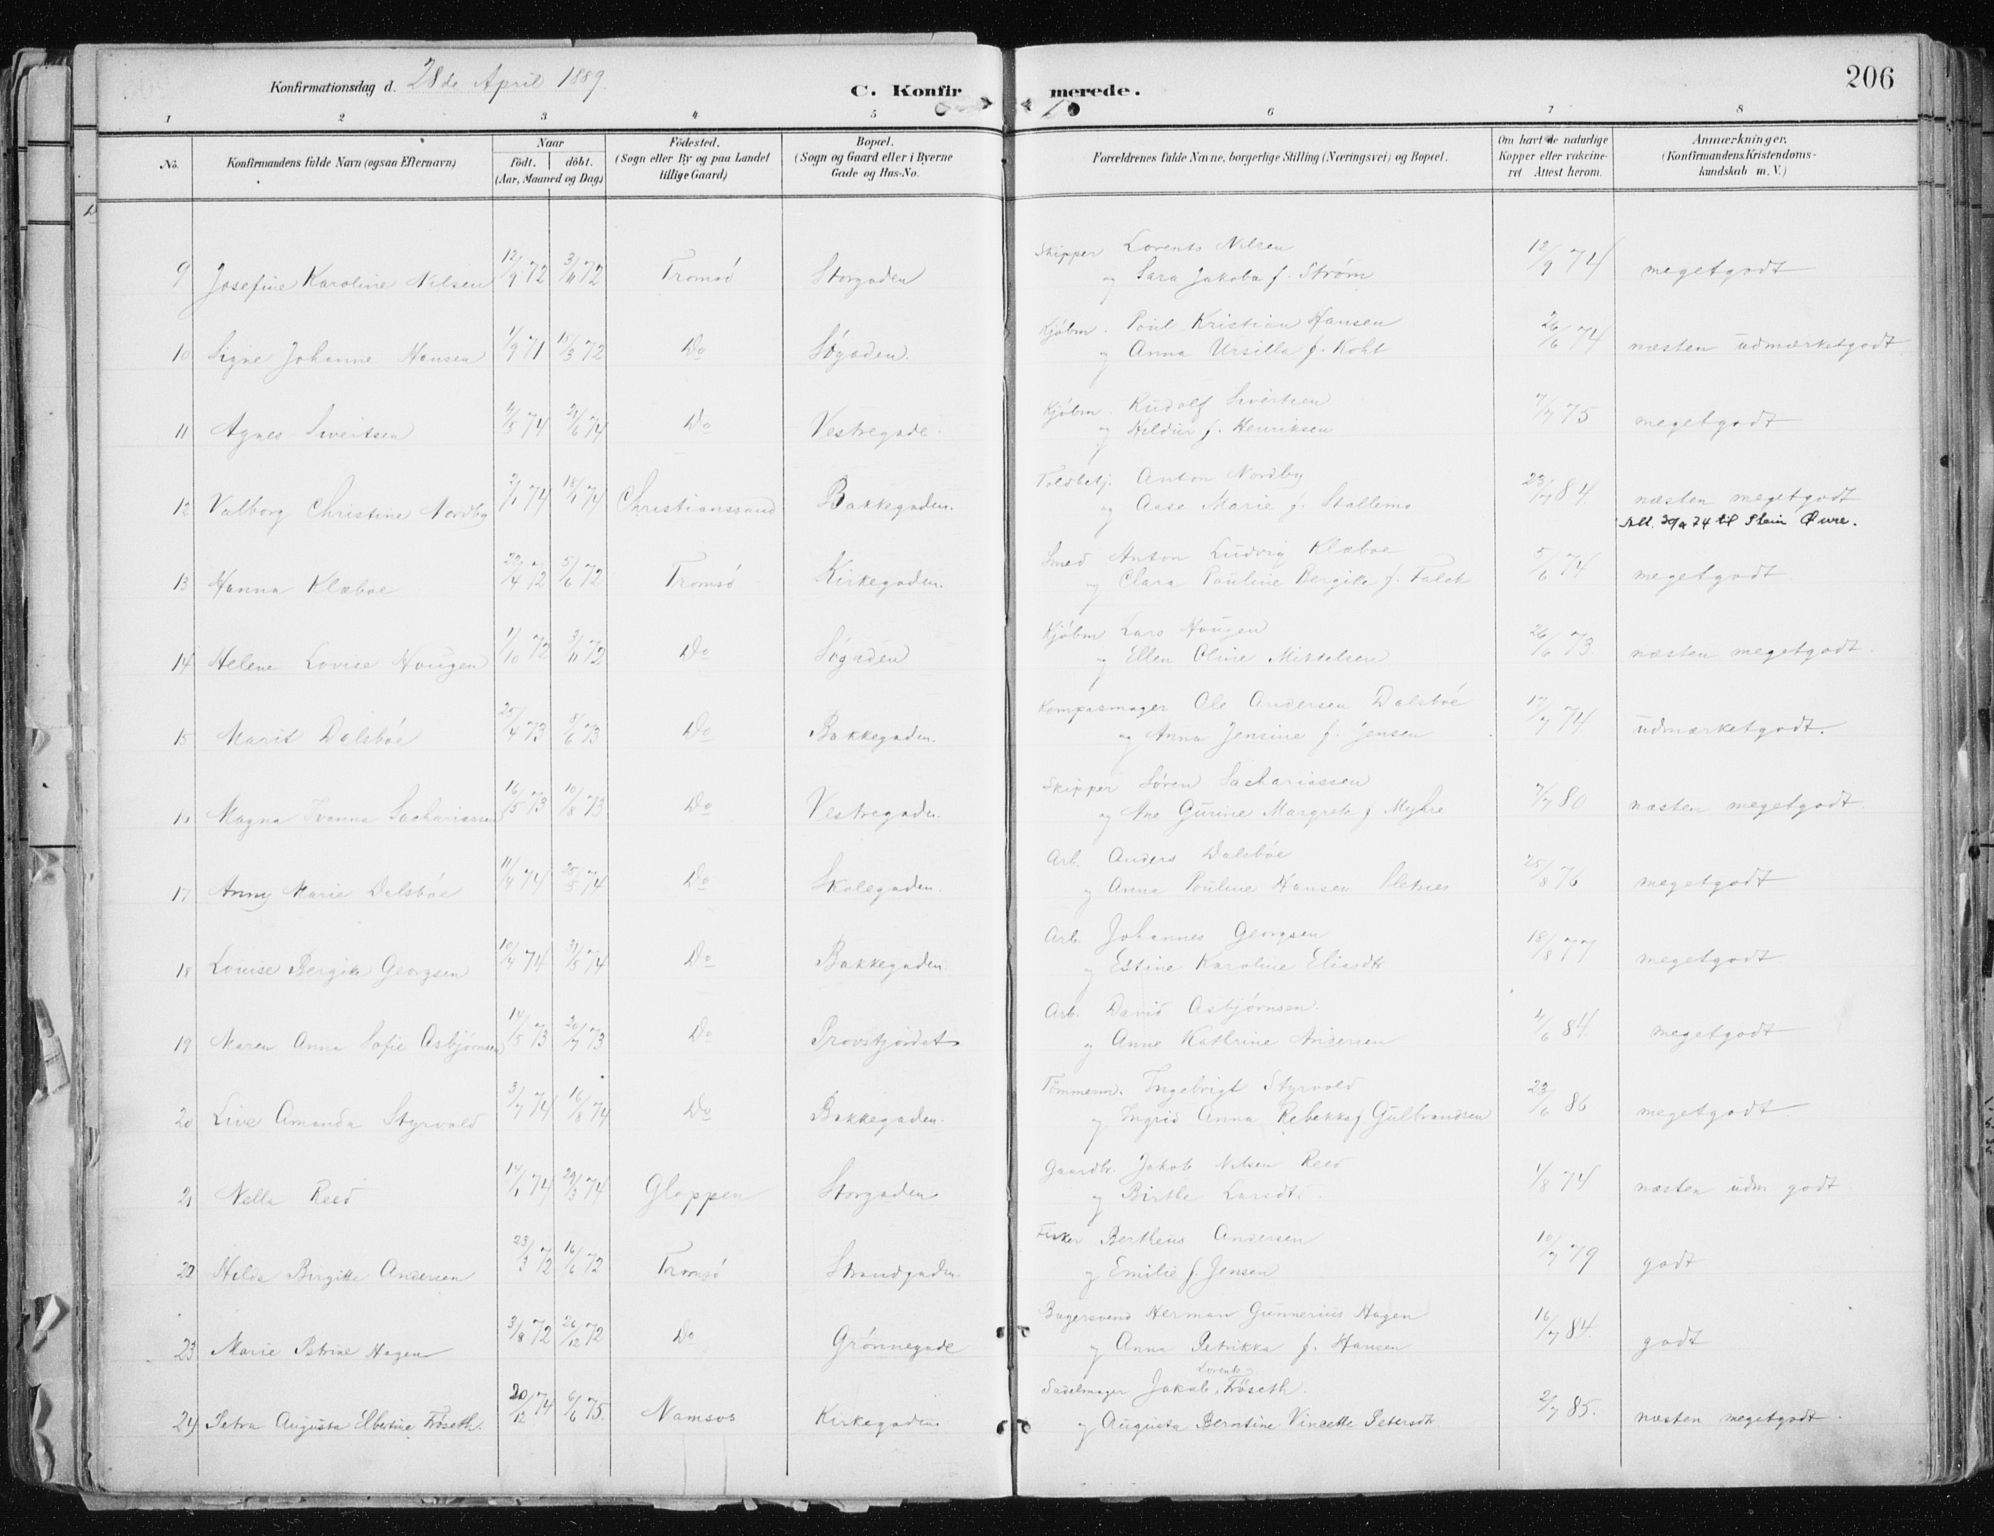 Konfirmationsdag d. 28de April 1889.
C. Konfirmerede.
206
1 2 3 4 5 6 7 8
No.
Konfirmandens fulde Navn (ogsaa Efternavn)
Naar
födt. döbt.
(Aar, Maaned og Dag)
Födested.
(Sogn eller By og paa Landet
tillige Gaard)
Bopæl.
(Sogn og Gaard eller i Byerne
Gade og Hus-No.
Forældrenes fulde Navne, borgerlige Stilling (Næringsvei) og Bopæl.
Om havt de naturlige
Kopper eller vakcine-
ret. Attest herom.
Anmærkninger.
(Konfirmandens Kristendoms-
kundskab m. V.)
Skipper Lorents Nilsen
9 Josefine Karoline Nilsen 12/9 72 3/11 72 Tromsö Storgaden og Sara Jakoba f. Strøm 12/9 74 megetgodt
Kjøbm. Poul Kristian Hansen
10 Signe Johanne Hansen 1/9 71 10/3 72 Do Søgaden. og Anna Ursilla f. Koht 26/6 74 næsten udmærketgodt
Kjøbm. Rudolf Sivertsen
11 Agnes Sivertsen 4/5 74 21/6 74 Do Vestregade. og Hildur f. Henriksen 7/7 75 megetgodt
Toldbetj. Anton Nordby
12 Valborg Christine Nordby 2/1 74 18/1 74 Christianssand Bakkegaden. og Aase Marie f. Stallemo 23/7 84 næsten megetgodt
til Stein Øvre.
Smed Anton Ludvig Klæboe
13 Hanna Klæboe 22/4 72 5/6 72 Tromsö Kirkegaden. og Clara Pauline Bergite f. Falch 5/6 74 megetgodt
Kjøbm Lars Hougen
14 Helene Lovise Hougen 1/10 72 3/11 72 Do Søgaden og Ellen Oline Mikkelsen 26/6 73. næsten megetgodt.
Kompasmager Ole Andersen Dalsböe
15 Marit Dalsböe 25/4 73 8/6 73 Do Bakkegaden. og Anna Jensine f. Jensen 17/7 74 udmærketgodt.
Skipper Søren Sachariassen
16 Magna Ivanna Sachariassen 16/5 73 10/8 73 Do Vestregaden. og Ane Gurine Margrete f Myhre 7/7 80 næsten megetgodt.
Arb. Anders Dalsböe
17 Anny Marie Dalsböe 11/4 74 25/5 74 Do Skolegaden. og Anna Pouline Hansen Sletnes 25/8 76 megetgodt
Arb. Johannes Georgsen
18 Louise Bergite Georgsen 10/4 74 31/5 74 Do Bakkegaden. og Estine Karoline Eliasdtr 18/8 77 megetgodt
Arb. David Asbjørnsen.
19 Maren Anna Sofie Asbjørnsen 14/5 73 20/7 73 Do Provstjordet og Anne Kathrine Andersen 4/6 84 megetgodt
Tömmerm. Ingebrigt Styrvold
20 Live Amanda Styrvold 3/7 74 16/8 74 Do Bakkegaden. og Ingrid Anna Rebekka f. Gulbrandsen 23/6 86 megetgodt
Gaardbr. Jakob Nilsen Reed
21 Nella Reed 14/1 74 29/3 74 Gloppen Storgaden og Birthe Larsdtr. 1/8 74 næsten udm godt
Fisker Bertheus Andersen
22 Hilda Birgitte Andersen 23/3 72 16/6 72 Tromsö Strandgaden. og Emilie f. Jensen 10/7 79 godt
Bagersvend Herman Gunnerius Hagen
23 Marie Petrine Hagen 3/8 72 26/12 72 Do Grönnegade og Anna Petrikka f. Hansen 16/7 84. godt
Sadelmager Jakob Lorents Fröseth.
24 Petra Augusta Elbertine Fröseth. 20/12 74 6/6 75. Namsos Kirkegaden. og Augusta Berntine Vincette Petersdtr. 2/7 85. næsten megetgodt.